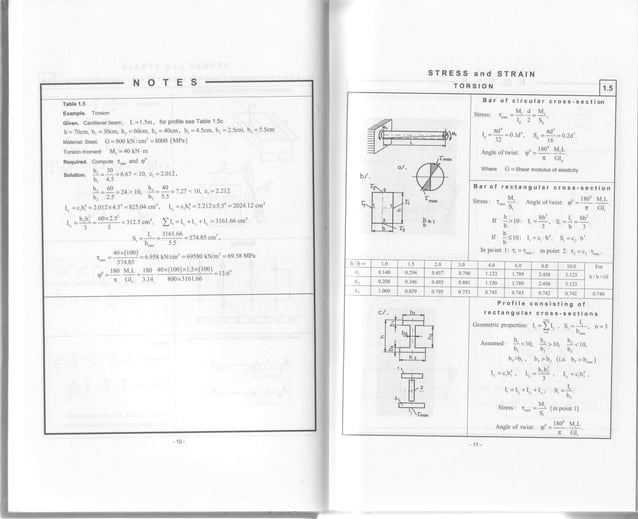 NOTES
Table 1.5
Example. Torsion
Given. Cantilever beam, L = 1.5m, for profile see Table 1.5c
h = 70cm, h₁ = 30cm, h₂ = 60cm, h₃ = 40cm, b₁ = 4.5cm, b₂ = 2.5cm, b₃ = 5.5cm
Material: Steel, G = 800 kN/cm² = 8000 (MPa)
Torsion moment M_t = 40 kN·m
Required. Compute τ_max and φ°
Solution. h₁/b₁ = 30/4.5 = 6.67 < 10, c₁ = 2.012,
h₂/b₂ = 60/2.5 = 24 > 10, h₃/b₃ = 40/5.5 = 7.27 < 10, c₁ = 2.212
I_t₁ = c₁b₁⁴ = 2.012×4.5⁴ = 825.04 cm⁴, I_t₃ = c₁b₃⁴ = 2.212×5.5⁴ = 2024.12 cm⁴
I_t₂ = h₂b₂³/3 = 60×2.5³/3 = 312.5 cm⁴, ∑I_t = I_t₁ + I_t₂ + I_t₃ = 3161.66 cm⁴
S_t = I_t/b_max = 3161.66/5.5 = 574.85 cm³,
τ_max = 40×(100)/574.85 = 6.958 kN/cm² = 69580 kN/m² = 69.58 MPa
φ° = 180/π · M_tL/GI_t = 180/3.14 · 40×(100)×1.5×(100)/800×3161.66 = 13.6°
- 10 -
STRESS and STRAIN
TORSION
1.5
Bar of circular cross-section
Stress: τ_max = M_t/I_p · d/2 = M_t/S_p,
I_p = πd⁴/32 = 0.1d⁴, S_p = πd³/16 = 0.2d³.
Angle of twist: φ° = 180°/π · M_tL/GI_p
Where G = Shear modulus of elasticity
Bar of rectangular cross-section
Stress: τ_max = M_t/S_t, Angle of twist: φ° = 180°/π · M_tL/GI_t
If h/b > 10: I_t = hb³/3, S_t = I_t/b = hb²/3.
If h/b ≤ 10: I_t = c₁·b⁴, S_t = c₂·b³.
In point 1: τ₁ = τ_max, in point 2: τ₂ = c₃·τ_max.
a/.
L
M_t
τ_max
b/.
h/b = 1.0 1.5 2.0 3.0 4.0 6.0 8.0 10.0 For h/b > 10
c₁ 0.140 0.294 0.457 0.790 1.123 1.789 2.456 3.123
c₂ 0.208 0.346 0.493 0.801 1.150 1.789 2.456 3.123
c₃ 1.000 0.859 0.795 0.753 0.745 0.743 0.742 0.742 0.740
c/.
Profile consisting of
rectangular cross-sections
Geometric properties: I_t = ∑I_ti, S_t = I_t/b_max, n = 3
Assumed: h₁/b₁ < 10, h₂/b₂ > 10, h₃/b₃ < 10,
b₃ > b₁, b₁ > b₂ (i.e. b₃ = b_max)
I_t₁ = c₁b₁⁴, I_t₂ = h₂b₂³/3, I_t₃ = c₁b₃⁴,
I_t = I_t₁ + I_t₂ + I_t₃, S_t = I_t/b₃
Stress: τ_max = M_t/S_t (in point 1).
Angle of twist: φ° = 180°/π · M_tL/GI_t.
τ_max
- 11 -